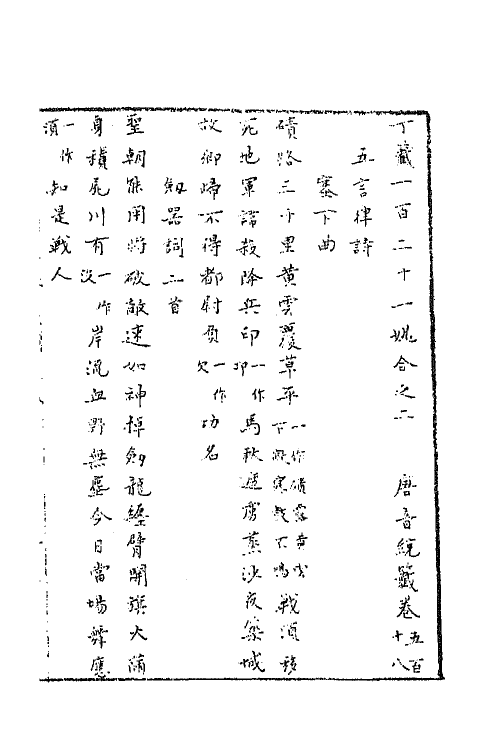 丁籤一百二十一姚合之二　唐音統籤卷五百十八
五言律詩
塞下曲
磧路三千里黃雲覆草平一作磧露黃雲下凝寒鼓不鳴戰須移
死地軍諱殺降兵印一作卬馬秋遮虜蒸沙夜築城
故鄉歸不得都尉負一作欠功名
劔器詞三首
聖朝能用將破敵速如神掉劔龍纏臂開旗火滿
身積屍川有一作沒岸流血野無塵今日當場舞應
一作須知是戰人